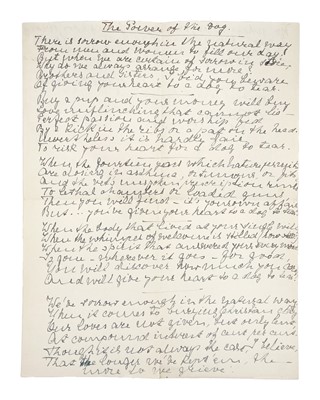 The Power of the Dog
There is sorrow enough in the natural way
From men and women to fill our day;
But when we are certain of sorrow in store,
Why do we always arrange for more?
Brothers and Sisters, I bid you beware
Of giving your heart to a dog to tear.
Buy a pup and your money will buy
Love unflinching that cannot lie
Perfect passion and worship fed
By a kick in the ribs or a pat on the head.
Nevertheless it is hardly fair
To risk your heart for a dog to tear.
When the fourteen years which nature permits
Are closing in asthma, or tumour, or fits,
And the vet's unspoken prescription runs
To lethal chambers or loaded guns,
Then you will find - it's your own affair
But... you've given your heart to a dog to tear.
When the body that lived at your single will
When the whimper of welcome is stilled (how still!)
When the spirit that answered your every mood
Is gone - wherever it goes - for good,
You will discover how much you care,
And will give your heart to a dog to tear
We've sorrow enough in the natural way
When it comes to burying Christian clay
Our loves are not given, but only lent,
At compound interest of cent per cent.
Though it is not always the case, I believe,
That the longer we've kept 'em, the
more do we grieve: